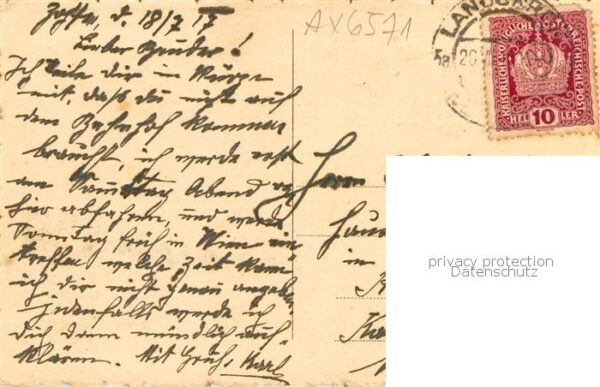 d. 18/7 17
Lieber Bruder!
Ich teile dir in Kürze
mit, dass du nicht auf
den Bahnhof kommen
brauchst, ich werde erst
am Samstag Abend von
hier abfahren, und werde
Sonntag früh in Wien ein-
treffen welche Zeit kann
ich dir nicht genau angeben
jedenfalls werde ich
dich dann mündlich auf-
klären. Mit Gruß, Karl
AX6571
Herrn
in
LANDSKR
KAISERLICHE KÖNIGLICHE ÖSTERREICHISCHE POST
HELLER
10
privacy protection
Datenschutz